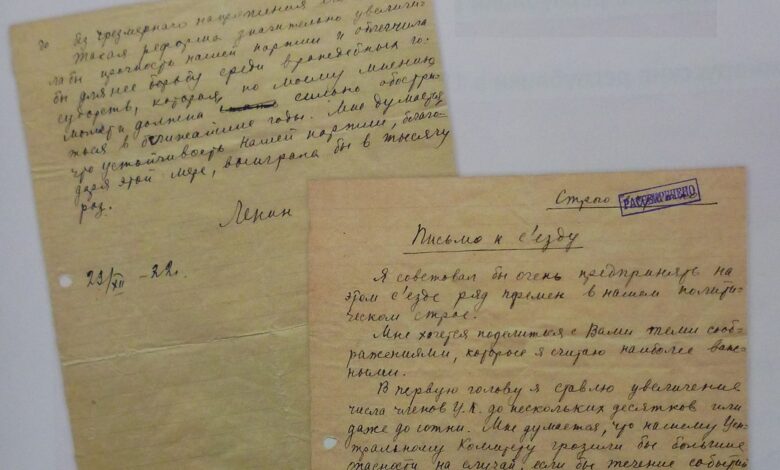 без чрезмерного напряжения
Такая реформа значительно увеличи-
ла бы прочность нашей партии и облегчила
бы для нее борьбу среди враждебных го-
сударств, которая, по моему мнению,
может и должна сильно обостри-
ться в ближайшие годы. Мне думается,
что устойчивость нашей партии, благо-
даря этой мере, выиграла бы в тысячу
раз.
Ленин
23/XII -22г.
Строго
РАССЕКРЕЧЕНО
Письмо к с'езду
Я советовал бы очень предпринять на
этом с'езде ряд перемен в нашем полити-
ческом строе.
Мне хочется поделиться с Вами теми сооб-
ражениями, которые я считаю наиболее важ-
ными.
В первую голову я ставлю увеличение
числа членов Ц.К. до нескольких десятков или
даже до сотни. Мне думается, что нашему Цен-
тральному Комитету грозили бы большие
опасности на случай, если бы течение событий